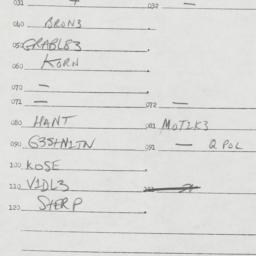 031 — 032 —
040 BRON3
050 GRABL83
060 KORN
070 —
071 — 072 —
080 HANT 081 MOT2K3
090 G3StN1TN 091 — Q POL
100 KOSE
110 V1DL3
120 StERP